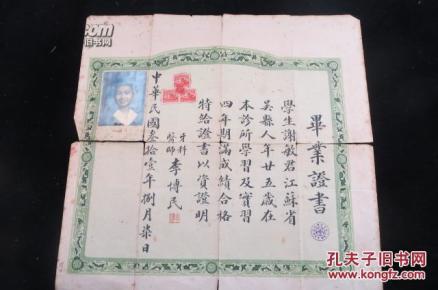 畢業證書
學生謝敏君江蘇省
吳縣人年廿五歲在
本診所學習及實習
四年期滿成績合格
特給證書以資證明
牙科醫師李博民
中華民國叁拾壹年捌月柒日
孔夫子旧书网
www.kongfz.com